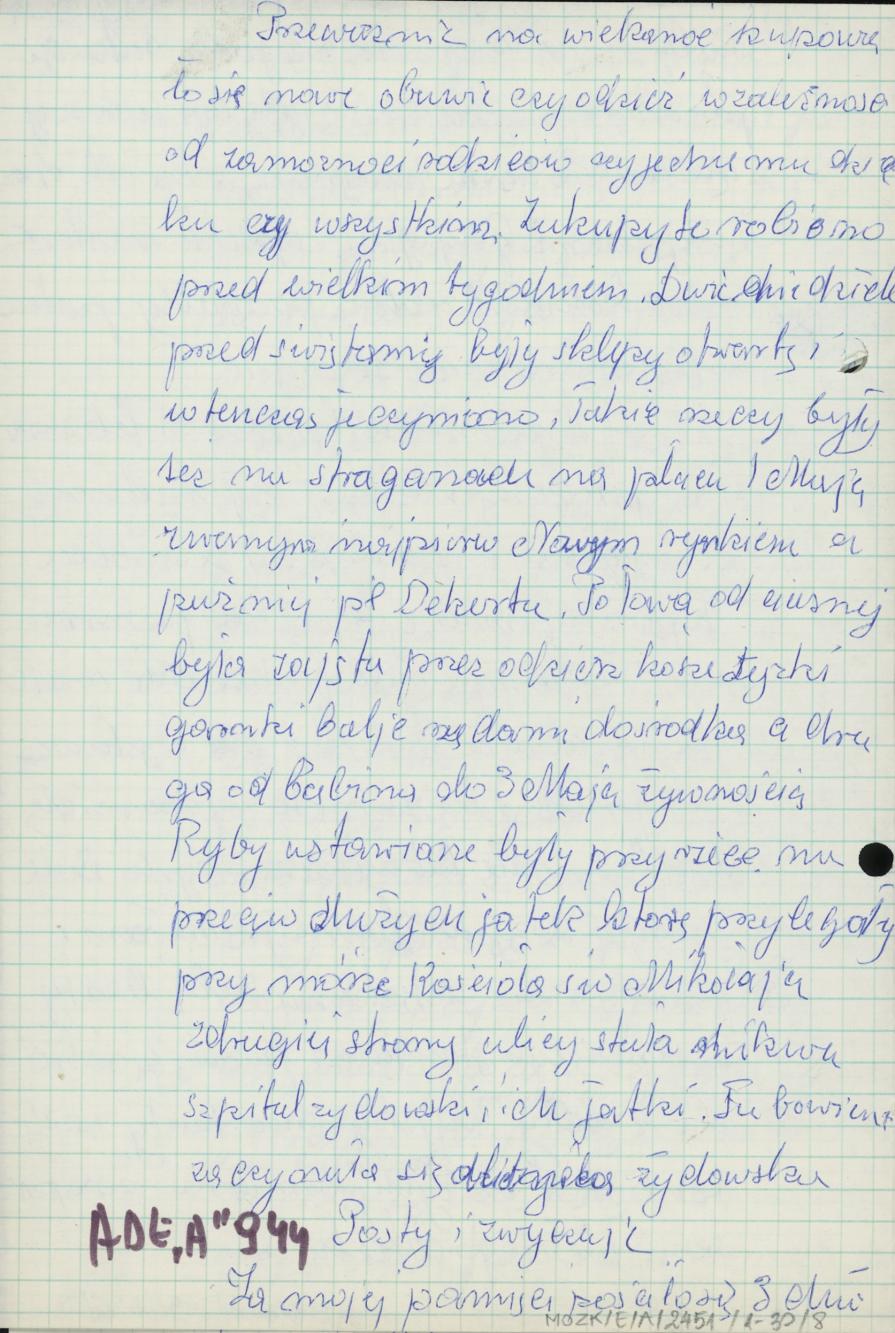 Przewaznie na wielkanoc kupowa
ło się nowe obuwie czy odzież wzależnosc
od zamoznoci rodziców czy jednemu dzie
ku czy wszystkim. Zakupy te robiono
przed wielkim tygodniem. Dwie niedziele
przed świętamy były sklepy otwarte i
wtenczas je czyniono, Takie rzeczy były
tez na straganach na placu 1 Maja
zwanym najpierw Nowym rynkiem a
puźniej pl Dekerta. Połowa od ciasnej
była zajęta przez odzież kosze łyżki
garnki balje rzędami dośrodka a dru
ga od Babina do 3 Maja żywnością
Ryby ustawiane były przy rzece na
przeciw dużych jatek które przylegały
przy murze Kościoła św Mikołaja
zdrugiej strony ulicy stała mikwa
szpital zydowski i ich jatki. Tu bowiem
zaczynała się dzielnica żydowska
ADE „A" 944 Posty i zwyczaje
Za mojej pamięci posciło się 3 dni
MOZK/E/A/2451/1-30/8